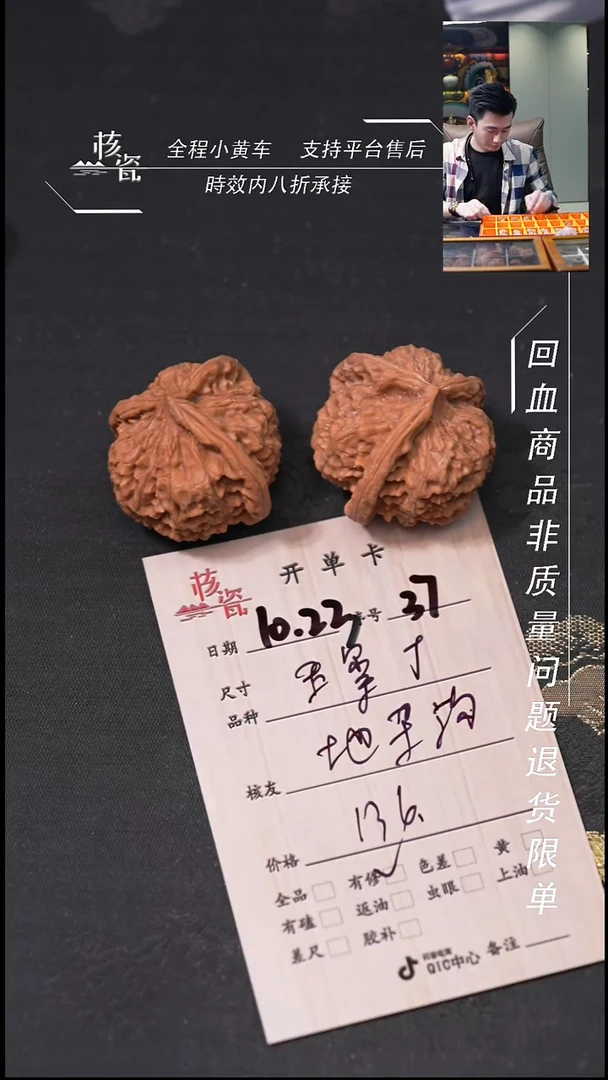 核瓷
全程小黄车 支持平台售后
時效内八折承接
回血商品非质量问题退货限单
核瓷
开单卡
日期 10.22 号 37
尺寸
品种
核友
价格 136
全品 有修 色差 黄
有磕 返油 虫眼 上油
差尺 胶补
抖音电商
QIC中心 备注